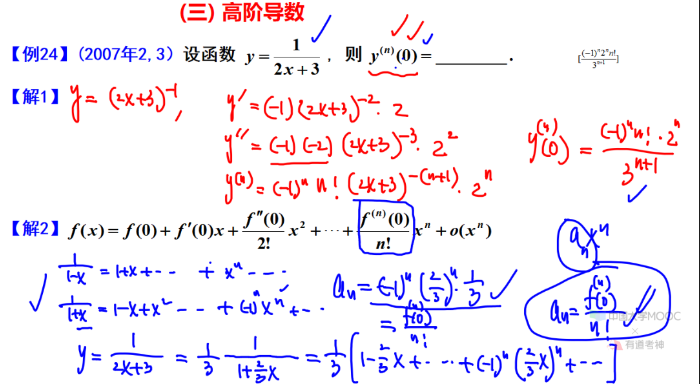 (三) 高阶导数
【例24】(2007年2,3) 设函数 y = 1/(2x+3) , 则 y^(n)(0) = ________ . [(-1)^n 2^n n! / 3^(n+1)]
【解1】 y = (2x+3)^-1 , y' = (-1)(2x+3)^-2 · 2
y'' = (-1)(-2)(2x+3)^-3 · 2^2
y^(n) = (-1)^n n! (2x+3)^-(n+1) · 2^n
y^(n)(0) = (-1)^n n! · 2^n / 3^(n+1)
【解2】 f(x) = f(0) + f'(0)x + f''(0)/2! x^2 + ··· + f^(n)(0)/n! x^n + o(x^n)
a_n x^n
1/(1-x) = 1+x+ ·· + x^n ···
1/(1+x) = 1-x+x^2 ··· + (-1)^n x^n + ··
a_n = (-1)^n (2/3)^n · 1/3
= f^(n)(0)/n!
a_n = f^(n)(0)/n!
中国大学MOOC
×
有道考神
y = 1/(2x+3) = 1/3 · 1/(1+2/3 x) = 1/3 [1 - 2/3 x + ··· + (-1)^n (2/3 x)^n + ···]